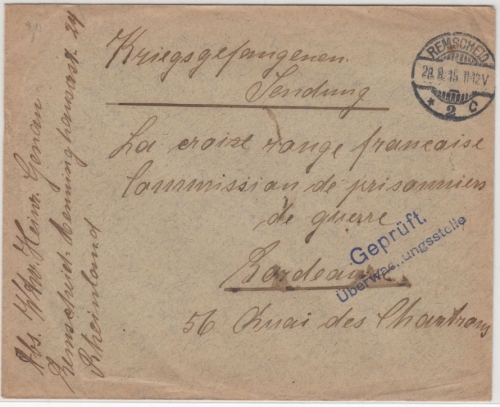 Kriegsgefangenen
Sendung
La croise range francaise
Commission de prisonniers
de guerre
Bordeaux
56 Quai des Chartrons
REMSCHEID
28.8.15. 11-12V
* 2 c
Geprüft.
Überwachungsstelle
Abs. Heinr. Genau
Remscheid Menninghauserstr. 24
Rheinland